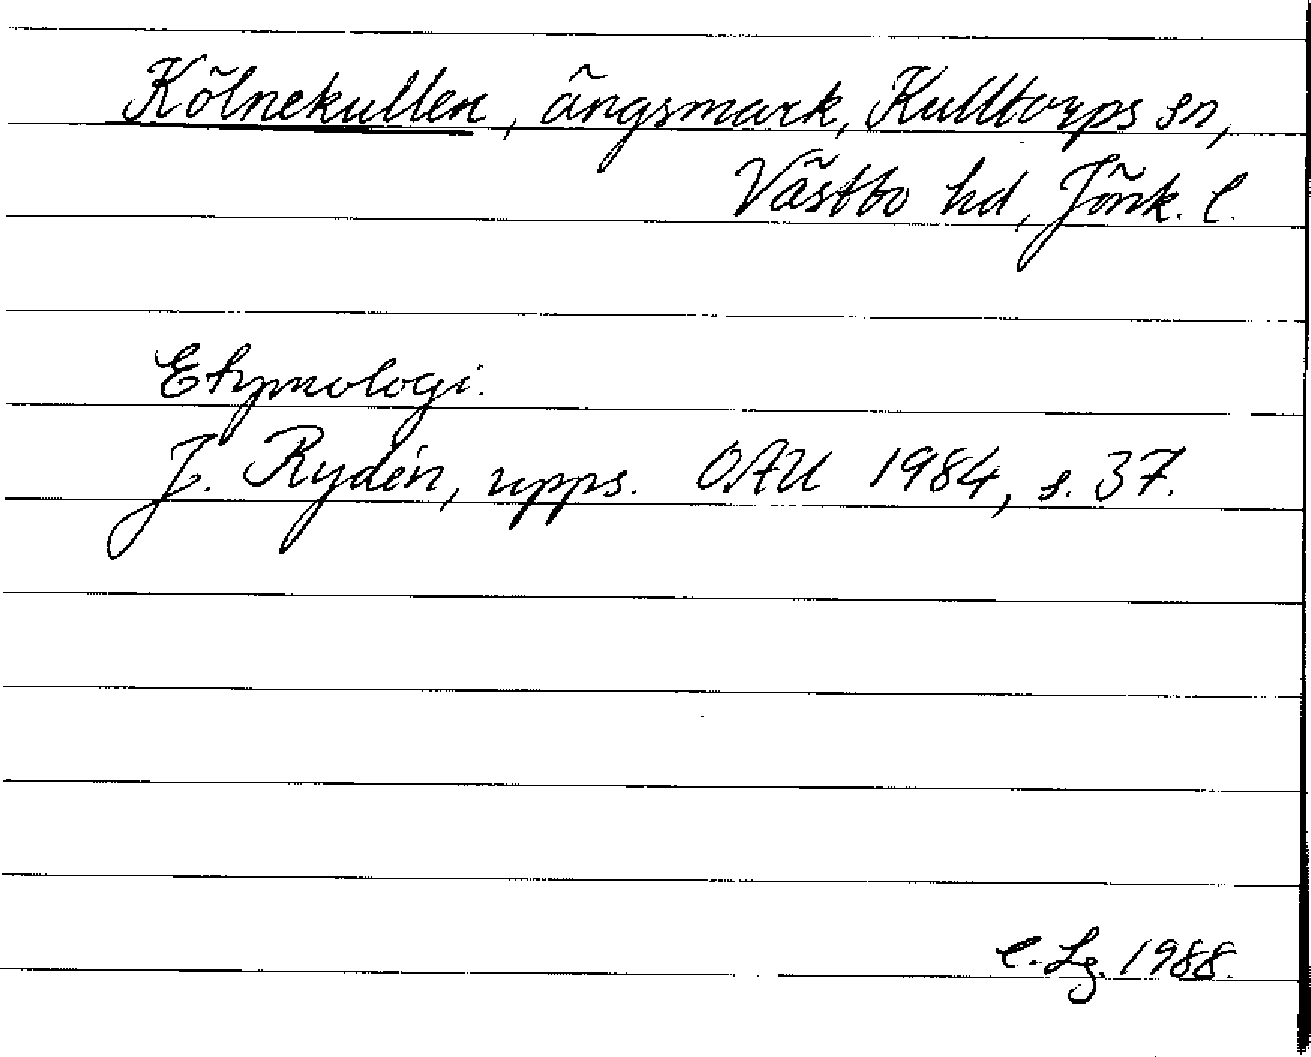 Kölnekullen, ängsmark, Kulltorps sn,
Västbo hd, Jönk. l.
Etymologi.
J. Rydén, upps. OAU 1984, s. 37.
C. Lg. 1988.